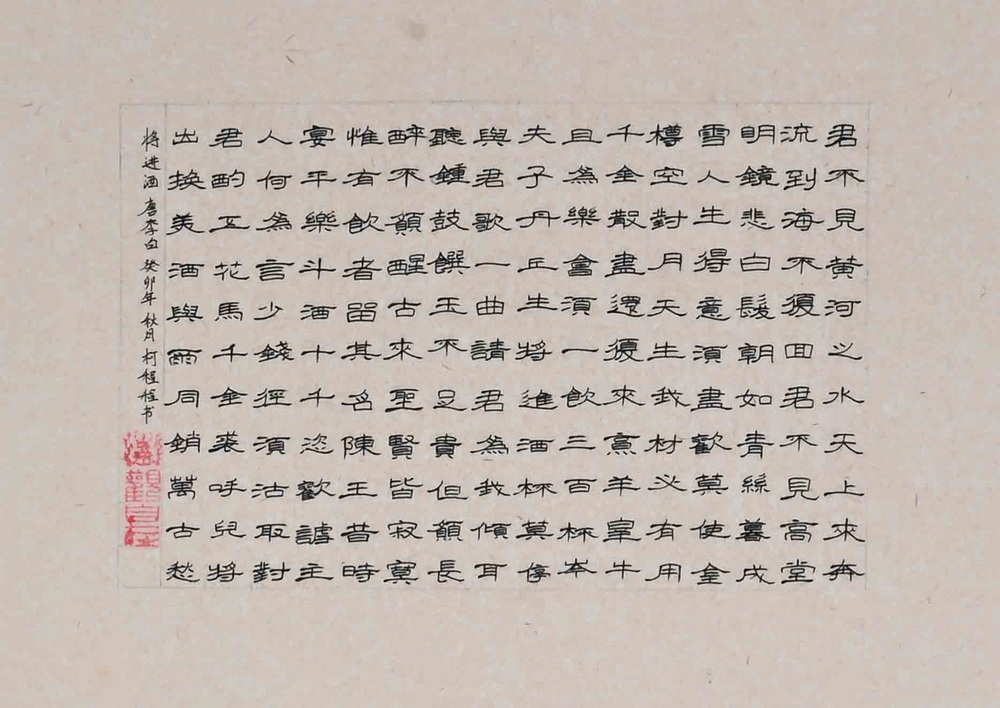 君不見黃河之水天上來奔
流到海不復回君不見高堂
明鏡悲白髮朝如青絲暮成
雪人生得意須盡歡莫使金
樽空對月天生我材必有用
千金散盡還復來烹羊宰牛
且為樂會須一飲三百杯岑
夫子丹丘生將進酒杯莫停
與君歌一曲請君為我傾耳
聽鍾鼓饌玉不足貴但願長
醉不願醒古來聖賢皆寂寞
惟有飲者留其名陳王昔時
宴平樂斗酒十千恣歡謔主
人何為言少錢徑須沽取對
君酌五花馬千金裘呼兒將
出換美酒與爾同銷萬古愁
将进酒 唐李白 癸卯年秋月 柯程书